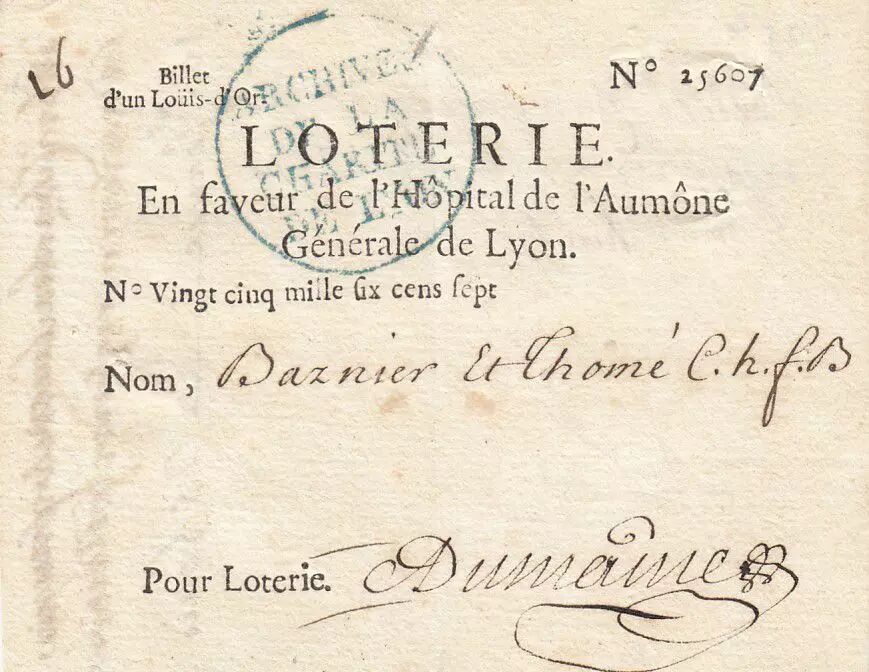 26
Billet
d'un Loüis-d'Or.
N° 25607
ARCHIVES
DE LA
CHARITÉ
DE LYON
LOTERIE.
En faveur de l'Hôpital de l'Aumône
Générale de Lyon.
N° Vingt cinq mille ſix cens ſept
Nom, Baznier Et Thomé C.h.f.B
Pour Loterie. Dumaine